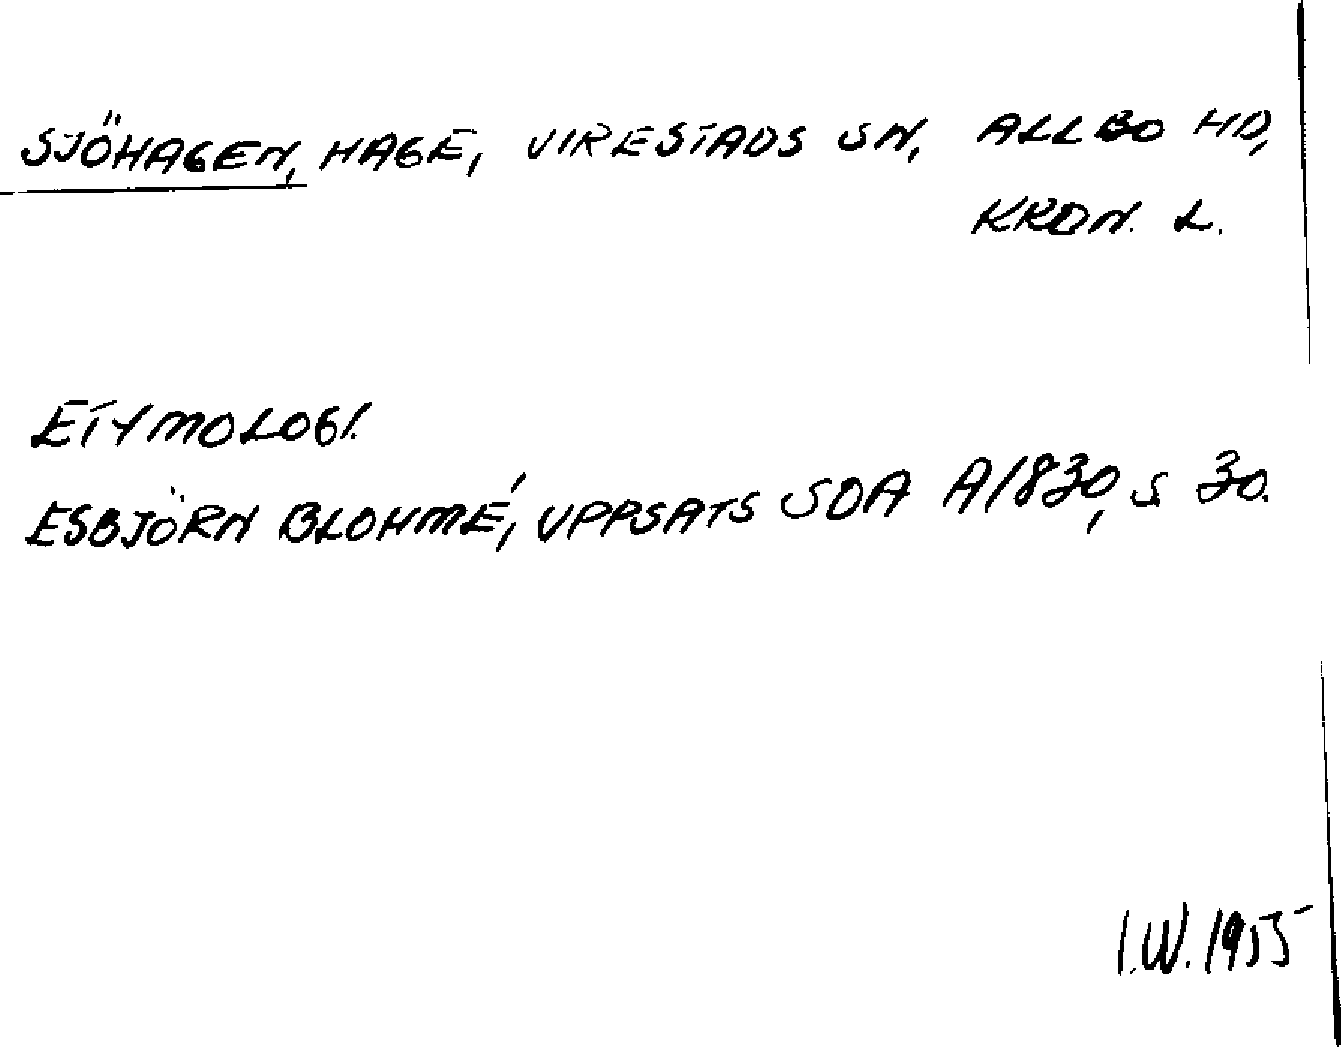 SJÖHAGEN, HAGE, VIRESTADS SN, ALLBO HD,
KRON. L.
ETYMOLOGI.
ESBJÖRN BLOHMÉ, UPPSATS SOA A1830, S 30.
I.W. 1955